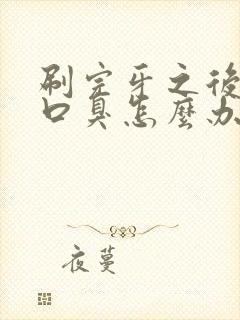 刷完牙之後
口臭怎麼办
夜蔓